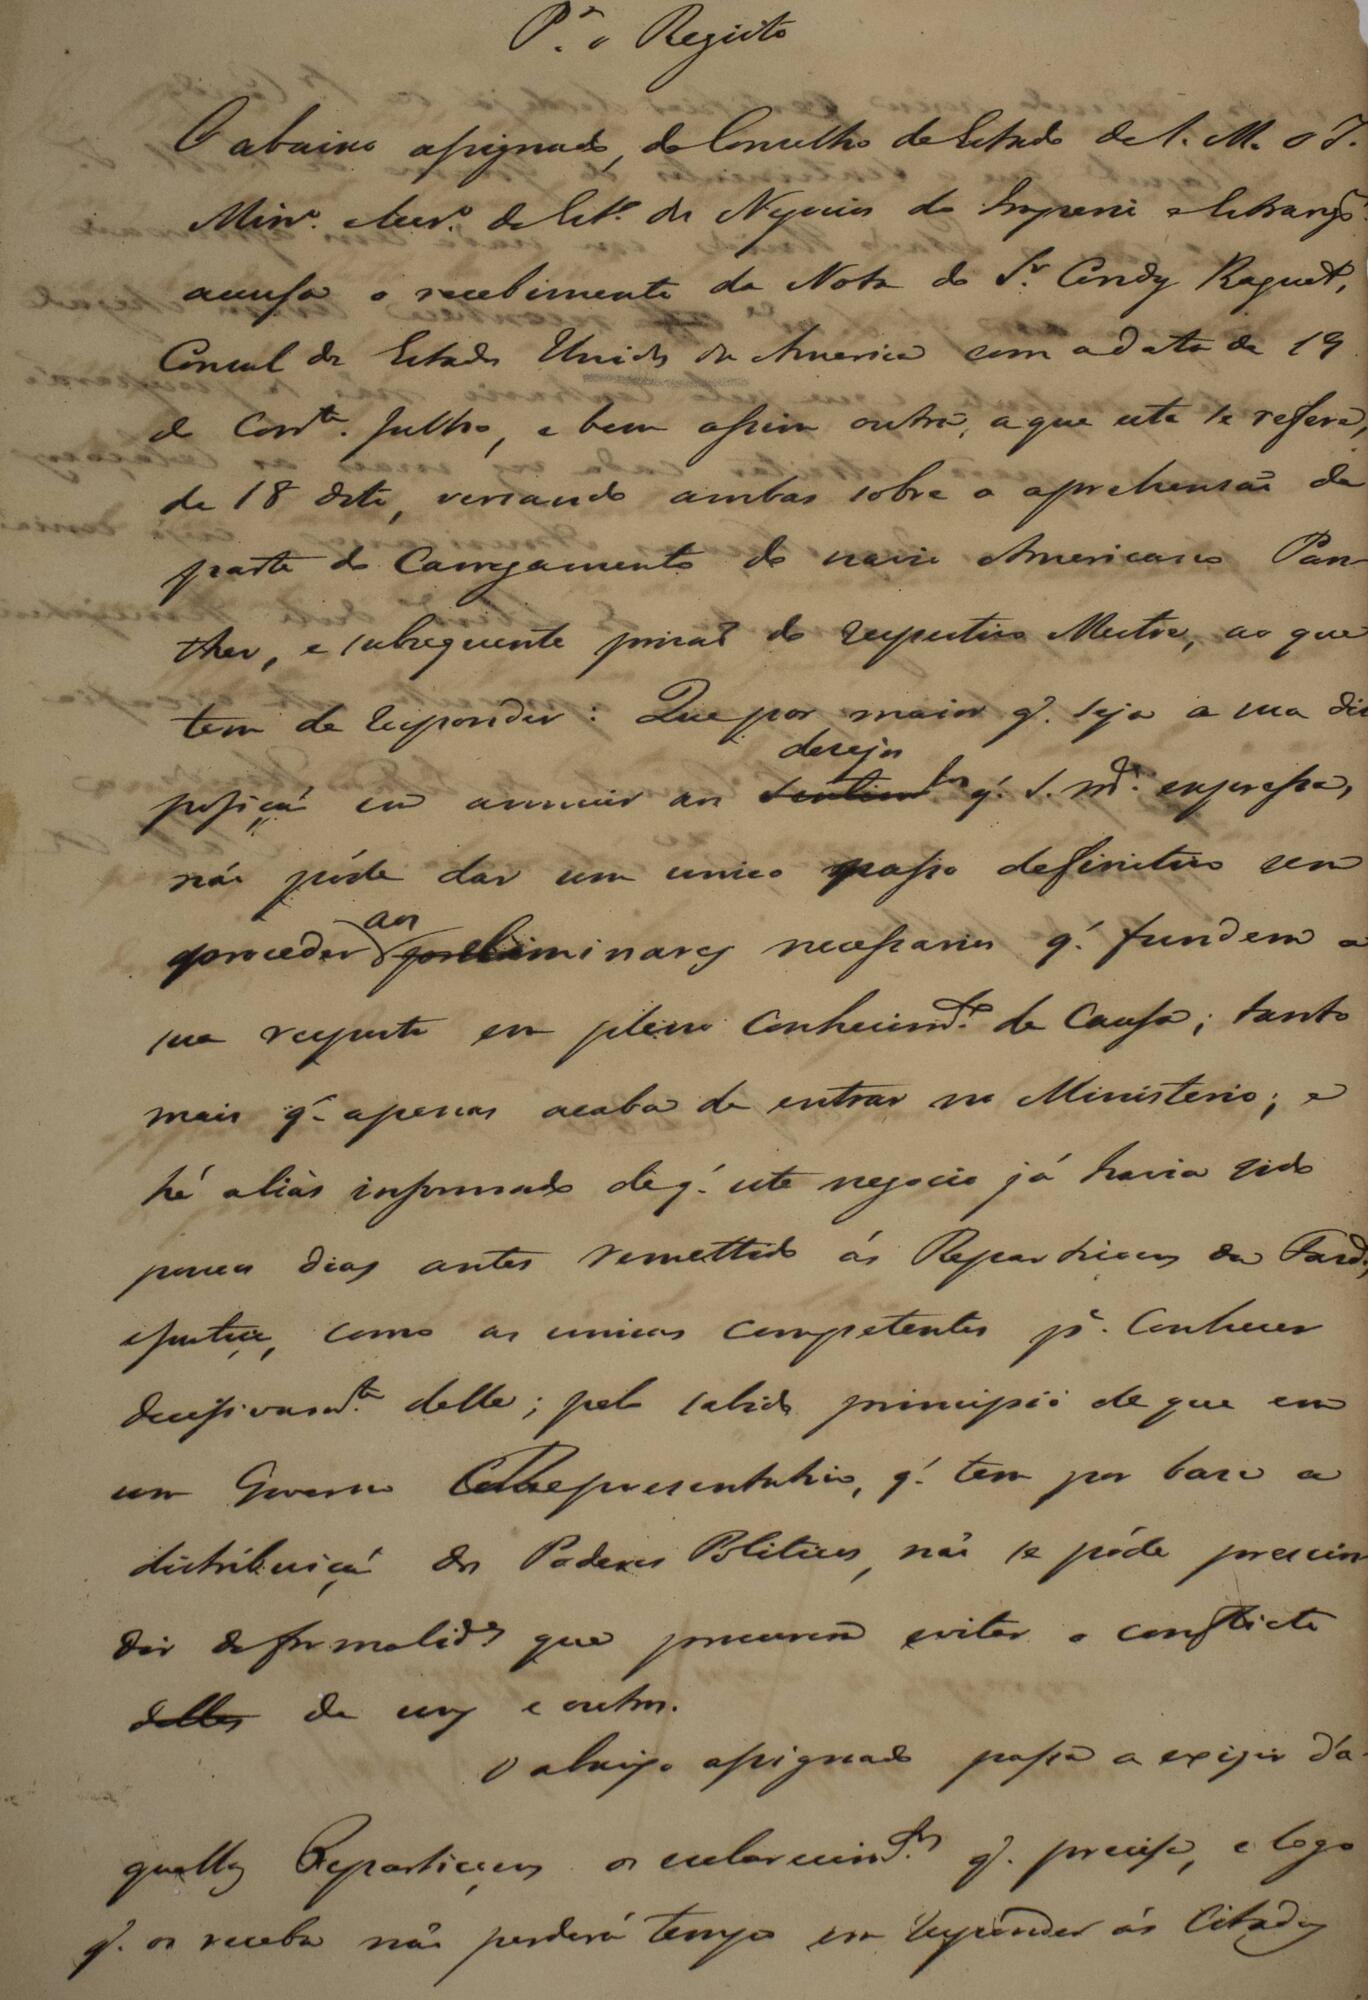 Pª. o Registo
O abaixo assignado, do Conselho de Estado de S. M. o I.
Minº. e Secrº. de Estº. dos Negocios do Imperio e Estrangrºˢ.
accusa o recebimento da Nota do Sʳ. Condy Raguet,
Consul dos Estados Unidos da America com a data de 19
do Corrᵗᵉ. Julho, e bem assim outra, a que esta se refere,
de 18 deste, versando ambas sobre a aprehensaõ de
parte do Carregamento do navio Americano Pan-
ther, e subsequente prisaõ do respectivo Mestre, ao que
tem de responder: Que por maior q'. seja a sua dis
posiçaõ em annuir aos sentimᵗᵒˢ desejos q'. S. Mᶜᵉ. expressa,
naõ póde dar um unico passo definitivo sem
proceder aos preliminares necessarios q'. fundem a
sua resposta em pleno conhecimᵗᵒ. de causa; tanto
mais q'. apenas acaba de entrar no Ministerio; e
hé aliàs informado de q'. este negocio já havia sido
poucos dias antes remettido ás Repartiçoens da Fazdᵃ,
e Justiça, como as unicas competentes pª. conhecer
decisivamᵗᵉ. delle; pelo sabido principio de que em
um Governo Representativo, q'. tem por base a
distribuiçaõ dos Poderes Politicos, naõ se póde prescin
dir de formalidᵉˢ que procurem evitar o conflicto
delles de uns e outros.
O abaixo assignado passa a exigir d'a-
quellas Repartiçoens os esclarecimᵗᵒˢ. q'. precisa, e logo
q'. os receba naõ perderá tempo em responder ás Citadas